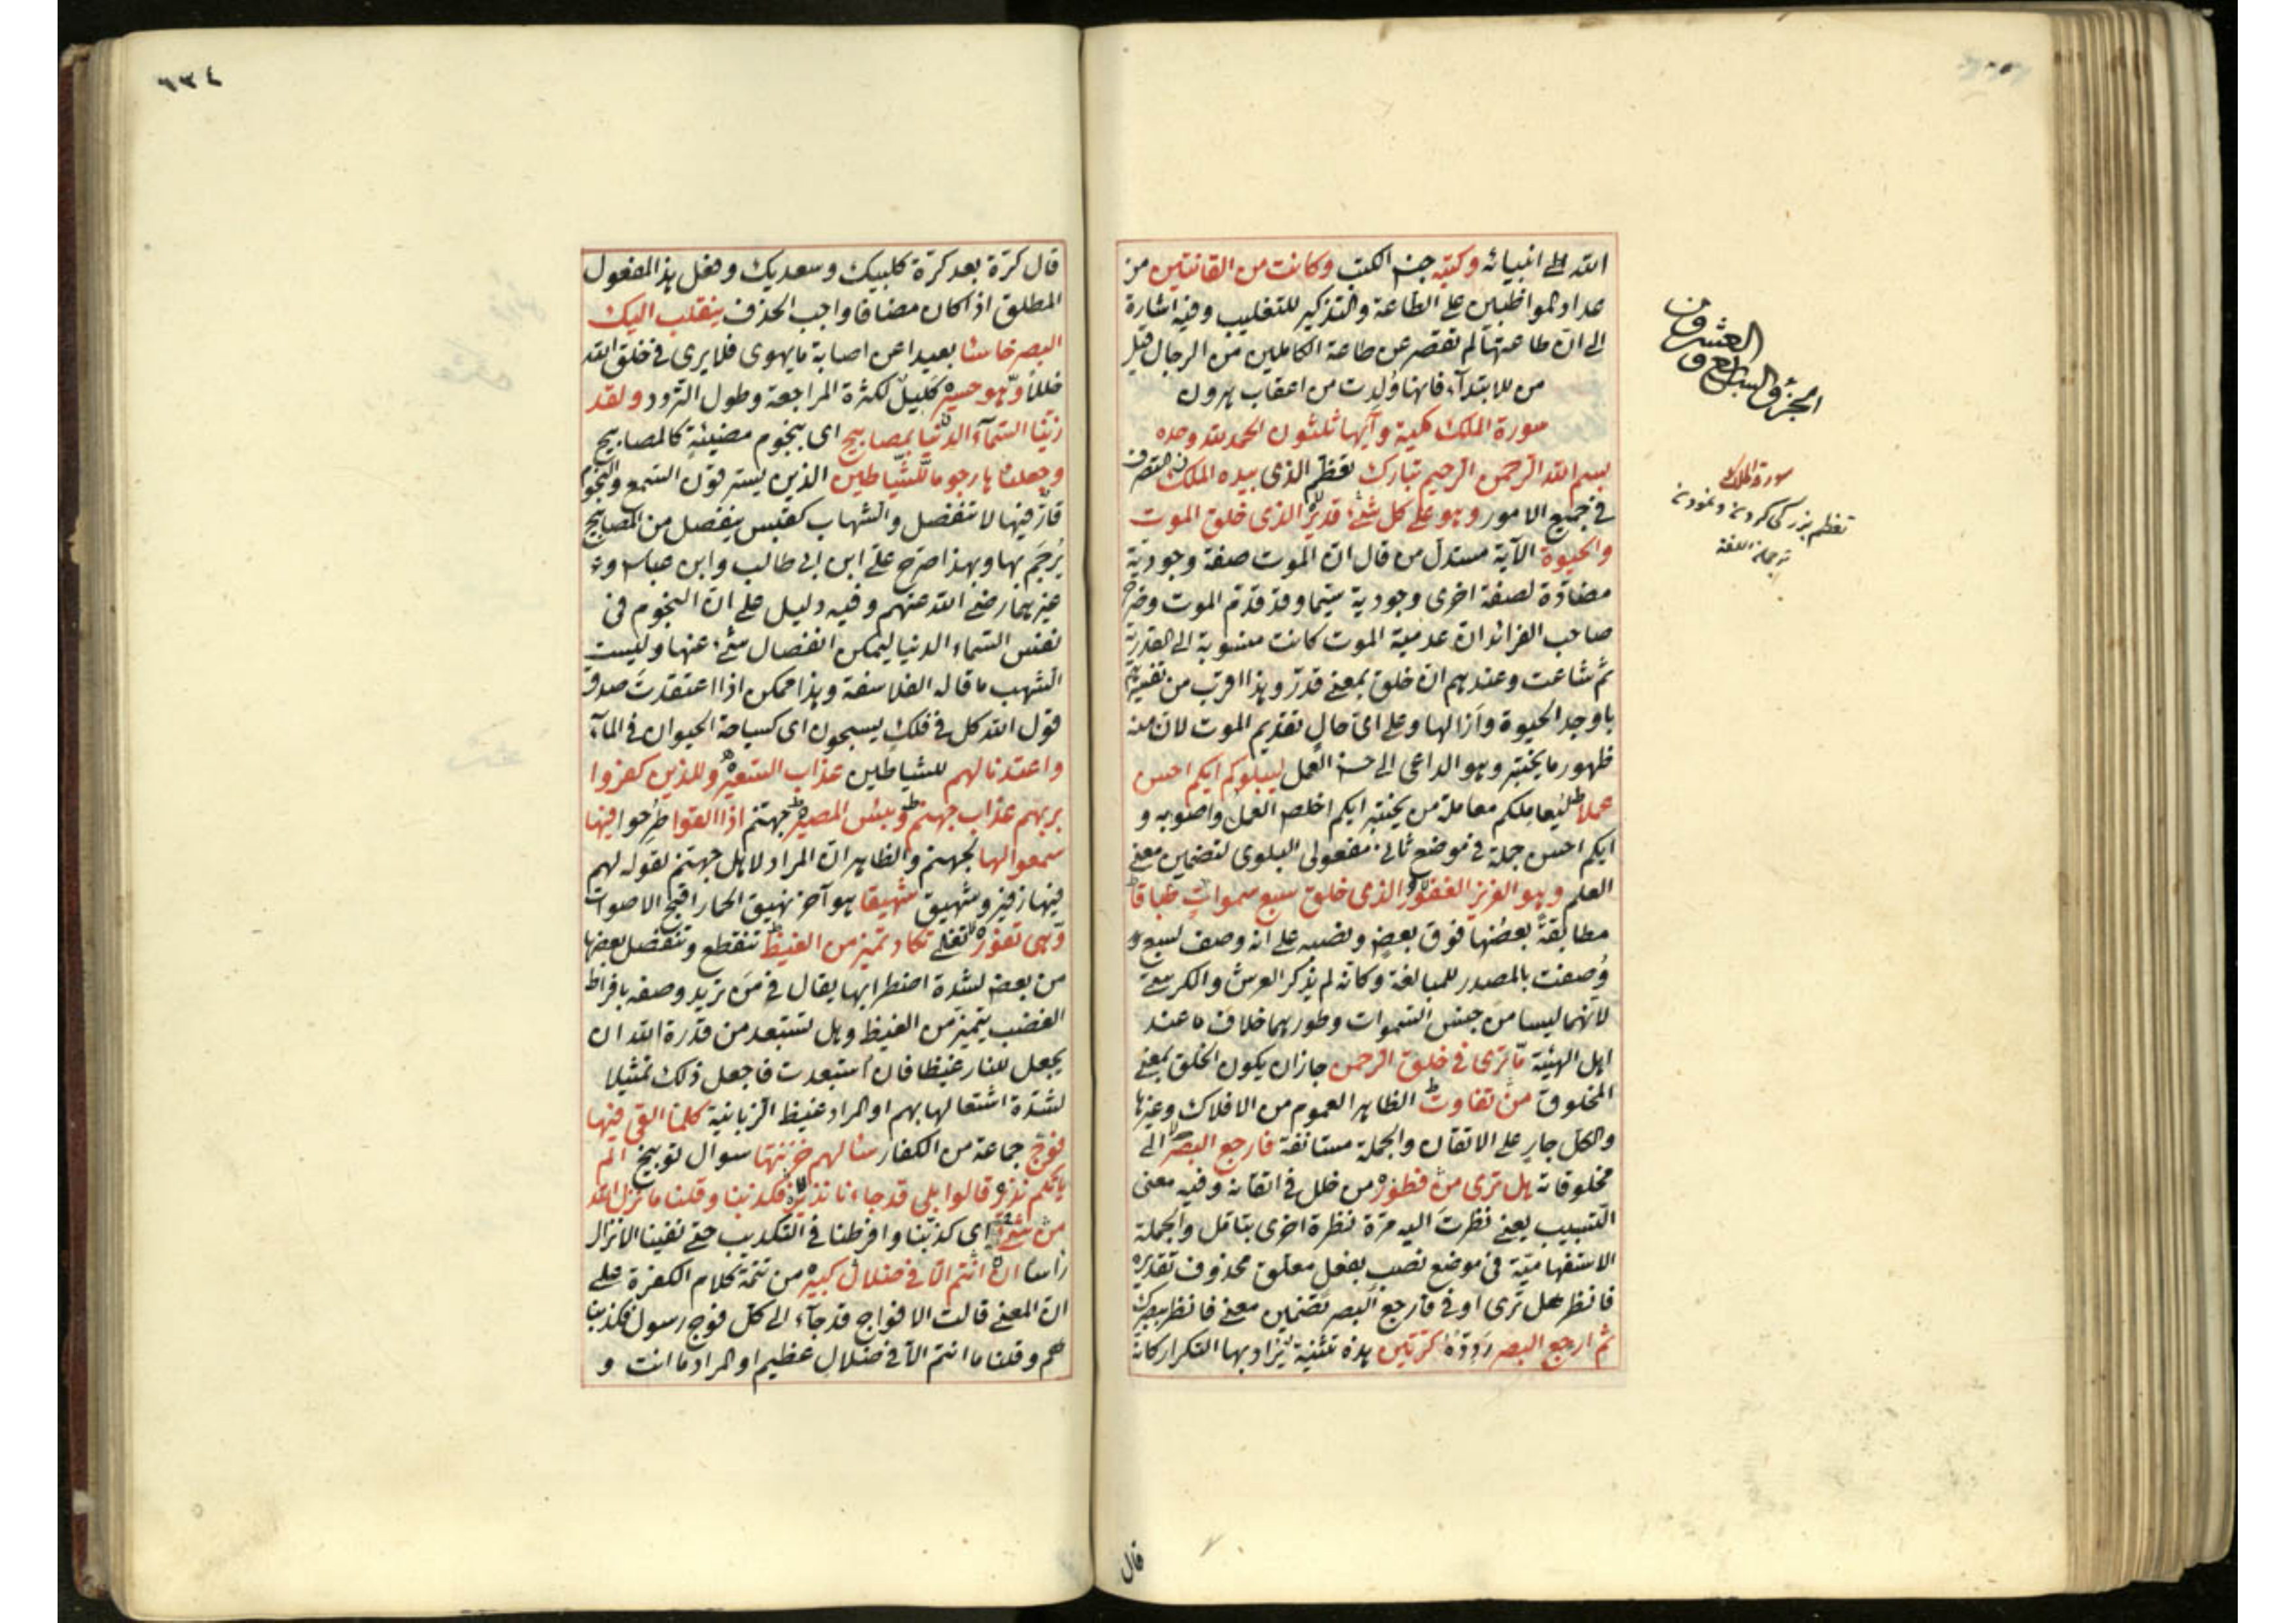 الله الى انبيائه وكتبه جنس الكتب وكانت من القانتين من
عداد المواظبين على الطاعة والتذكير للتغليب وفيه اشارة
الى ان طاعتها لم تقصر عن طاعة الكاملين من الرجال قيل
من للابتداء فانها ولدت من اعقاب هرون
سورة الملك مكية وآيها ثلثون الحمد لله وحده
بسم الله الرحمن الرحيم تبارك تعظم الذى بيده الملك التصرف
فى جميع الامور وهو على كل شئ قدير الذى خلق الموت
والحيوة الآية مستدل من قال ان الموت صفة وجودية
مضادة لصفة اخرى وجودية سيما وقد قدم الموت وصرح
صاحب الفرائد ان عدمية الموت كانت منسوبة الى القدرية
ثم شاعت وعندهم ان خلق بمعنى قدر وهذا اقرب من تفسيرهم
باوجد الحيوة وأزالها وعلى اى حال تقديم الموت لان منه
ظهور ما يختبر وهو الداعى الى حسن العمل ليبلوكم ايكم احسن
عملا ليعاملكم معاملة من يختبر ايكم اخلص العمل واصوبه و
ايكم احسن جملة فى موضع ثانى مفعولى البلوى لتضمين معنى
العلم وهو العزيز الغفور الذى خلق سبع سموات طباقا
مطابقة بعضها فوق بعض ونصبه على انه وصف لسبع و
وصفت بالمصدر للمبالغة وكانه لم يذكر العرش والكرسى
لانهما ليسا من جنس السموات وطورهما خلاف ما عند
اهل الهيئة ما ترى فى خلق الرحمن جاز ان يكون الخلق بمعنى
المخلوق من تفاوت الظاهر العموم من الافلاك وغيرها
والكل جار على الاتقان والجملة مستانفة فارجع البصر الى
مخلوقاته هل ترى من فطور من خلل فى اتقانه وفيه معنى
التسبيب يعنى نظرت اليه مرة نظرة اخرى بتامل والجملة
الاستفهامية فى موضع نصب بفعل معلق محذوف تقديره
فانظر هل ترى او فى فارجع البصر تضمين معنى فانظر ببصرك
ثم ارجع البصر ردده كرتين هذه تثنية يراد بها التكرار كانه
قال
الجزؤ السابع و
العشرون
سورة الملك
تعظم بزركى كردن و نمودن
ترجمان اللغة
٦٣٤
قال كرة بعد كرة كلبيك وسعديك وفعل هذا المفعول
المطلق اذا كان مضافا واجب الحذف ينقلب اليك
البصر خاسئا بعيدا عن اصابة ما يهوى فلا يرى فى خلق الله
خللا وهو حسير كليل لكثرة المراجعة وطول التردد ولقد
زينا السماء الدنيا بمصابيح اى بنجوم مضيئة كالمصابيح
وجعلناها رجوما للشياطين الذين يسترقون السمع والنجوم
قار فيها لا تنفصل والشهاب كقبس ينفصل من المصابيح
يرجم بها وبهذا صرح على ابن ابى طالب وابن عباس و
غيرهما رضى الله عنهم وفيه دليل على ان النجوم فى
نفس السماء الدنيا ليمكن انفصال شئ عنها وليست
الشهب ما قاله الفلاسفة وهذا ممكن اذا اعتقدت صدق
قول الله كل فى فلك يسبحون اى كسباحة الحيوان فى الماء
واعتدنا لهم للشياطين عذاب السعير وللذين كفروا
بربهم عذاب جهنم وبئس المصير جهنم اذا القوا طرحوا فيها
سمعوا لها لجهنم والظاهر ان المراد لاهل جهنم لقوله لهم
فيها زفير وشهيق شهيقا هو آخر نهيق الحمار اقبح الاصوات
وهى تفور تغلى تكاد تميز من الغيظ تنقطع وتنفصل بعضها
من بعض لشدة اضطرابها يقال فى من تريد وصفه بافراط
الغضب يتميز من الغيظ وهل تستبعد من قدرة الله ان
يجعل للنار غيظا فان استبعدت فاجعل ذلك تمثيلا
لشدة اشتعالها بهم او المراد غيظ الزبانية كلما القى فيها
فوج جماعة من الكفار سالهم خزنتها سوال توبيخ الم
ياتكم نذير قالوا بلى قد جاءنا نذير فكذبنا وقلنا ما نزل الله
من شئ اى كذبنا وافرطنا فى التكذيب حتى نفينا الانزال
راسا ان انتم الا فى ضلال كبير من تتمة كلام الكفرة على
ان المعنى قالت الافواج قد جاء الى كل فوج رسول فكذبنا
هم وقلنا ما انتم الا فى ضلال عظيم او المراد ما انت و